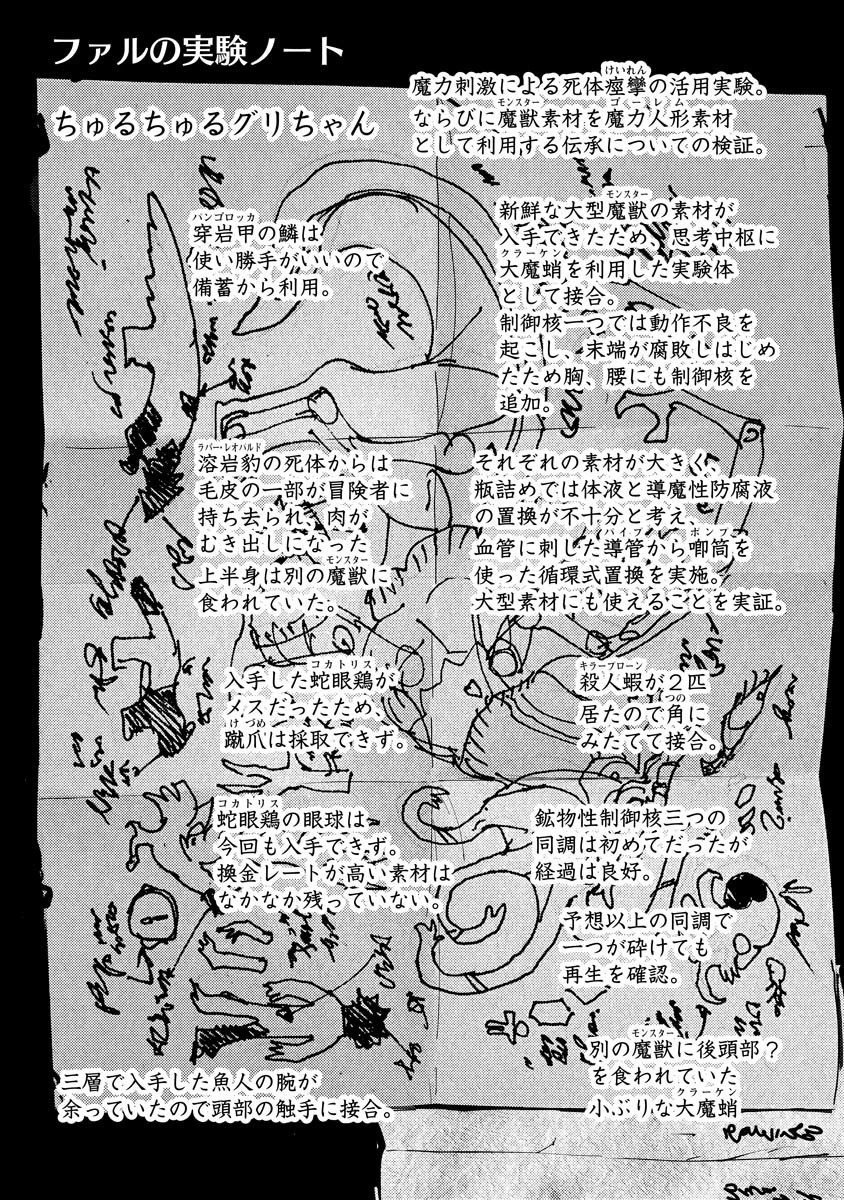 ファルの実験ノート
ちゅるちゅるグリちゃん
魔力刺激による死体痙攣の活用実験。
ならびに魔獣素材を魔力人形素材
として利用する伝承についての検証。
穿岩甲の鱗は
使い勝手がいいので
備蓄から利用。
新鮮な大型魔獣の素材が
入手できたため、思考中枢に
大魔蛸を利用した実験体
として接合。
制御核一つでは動作不良を
起こし、末端が腐敗しはじめ
たため胸、腰にも制御核を
追加。
溶岩豹の死体からは
毛皮の一部が冒険者に
持ち去られ、肉が
むき出しになった
上半身は別の魔獣に
食われていた。
それぞれの素材が大きく、
瓶詰めでは体液と導魔性防腐液
の置換が不十分と考え、
血管に刺した導管から喞筒を
使った循環式置換を実施。
大型素材にも使えることを実証。
入手した蛇眼鶏が
メスだったため、
蹴爪は採取できず。
殺人蝦が2匹
居たので角に
みたてて接合。
蛇眼鶏の眼球は
今回も入手できず。
換金レートが高い素材は
なかなか残っていない。
鉱物性制御核三つの
同調は初めてだったが
経過は良好。
予想以上の同調で
一つが砕けても
再生を確認。
別の魔獣に後頭部？
を食われていた
小ぶりな大魔蛸
三層で入手した魚人の腕が
余っていたので頭部の触手に接合。